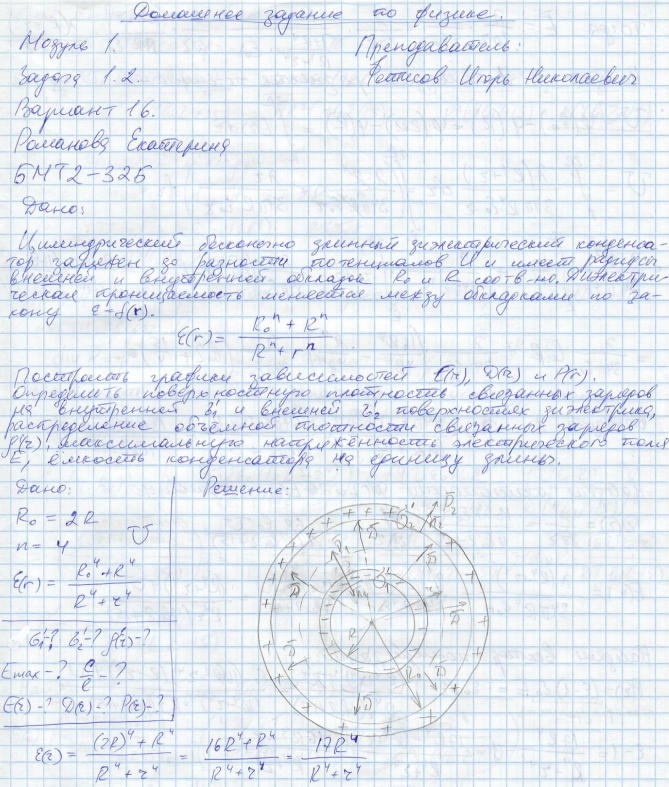 Домашнее задание по физике.
Модуль 1. Преподаватель:
Задача 1.2. Фетисов Игорь Николаевич
Вариант 16.
Романова Екатерина
БМТ2-32Б
Дано:
Цилиндрический бесконечно длинный диэлектрический конденса-
тор заряжен до разности потенциалов U и имеет радиусы
внешней и внутренней обкладок R₀ и R соотв-но. Диэлектри-
ческая проницаемость меняется между обкладками по за-
кону ε=f(r).
ε(r) = (R₀ⁿ + Rⁿ) / (Rⁿ + rⁿ)
Построить графики зависимостей E(r), D(r) и P(r).
Определить поверхностную плотность связанных зарядов
на внутренней σ₁' и внешней σ₂' поверхностях диэлектрика,
распределение объёмной плотности связанных зарядов
ρ'(r), максимальную напряжённость электрического поля
E, ёмкость конденсатора на единицу длины.
Дано: Решение:
R₀ = 2R
n = 4 U
ε(r) = (R₀⁴ + R⁴) / (R⁴ + r⁴)
σ₁'-? σ₂'-? ρ'(r)-?
Emax-? C/l-?
E(r)-? D(r)-? P(r)-?
ε(r) = ((2R)⁴ + R⁴) / (R⁴ + r⁴) = (16R⁴ + R⁴) / (R⁴ + r⁴) = 17R⁴ / (R⁴ + r⁴)